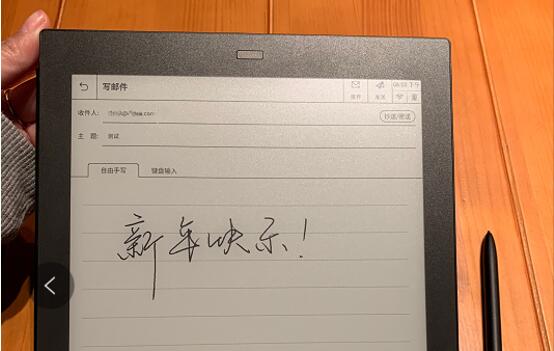 写邮件
邮件 发送 下午
收件人：
抄送/密送
主 题： 测试
自由手写 键盘输入
新年快乐！